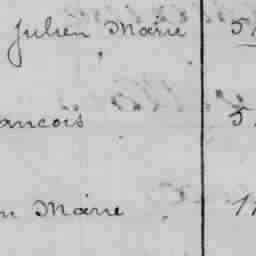 Julien Marie 5
ancois 5
n Marie 11